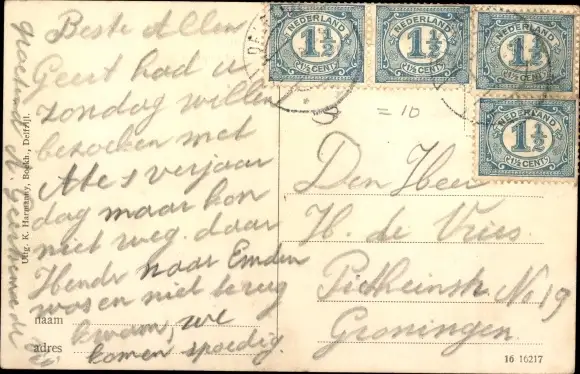 Beste Allen
Geert had u
zondag willen
bezoeken met
Ate's verjaar
dag maar kon
niet weg. daar
Hendr naar Emden
was en niet terug
kwam, we
komen spoedig.
naam
adres
Uitg. K. Harmanny, Boekh., Delfzijl.
NEDERLAND
1½
1½ CENT
NEDERLAND
1½
1½ CENT
NEDERLAND
1½
1½ CENT
NEDERLAND
1½
1½ CENT
= 10
Den Heer
H. de Vries
Pietheinstr. No 19
Groningen.
16 16217